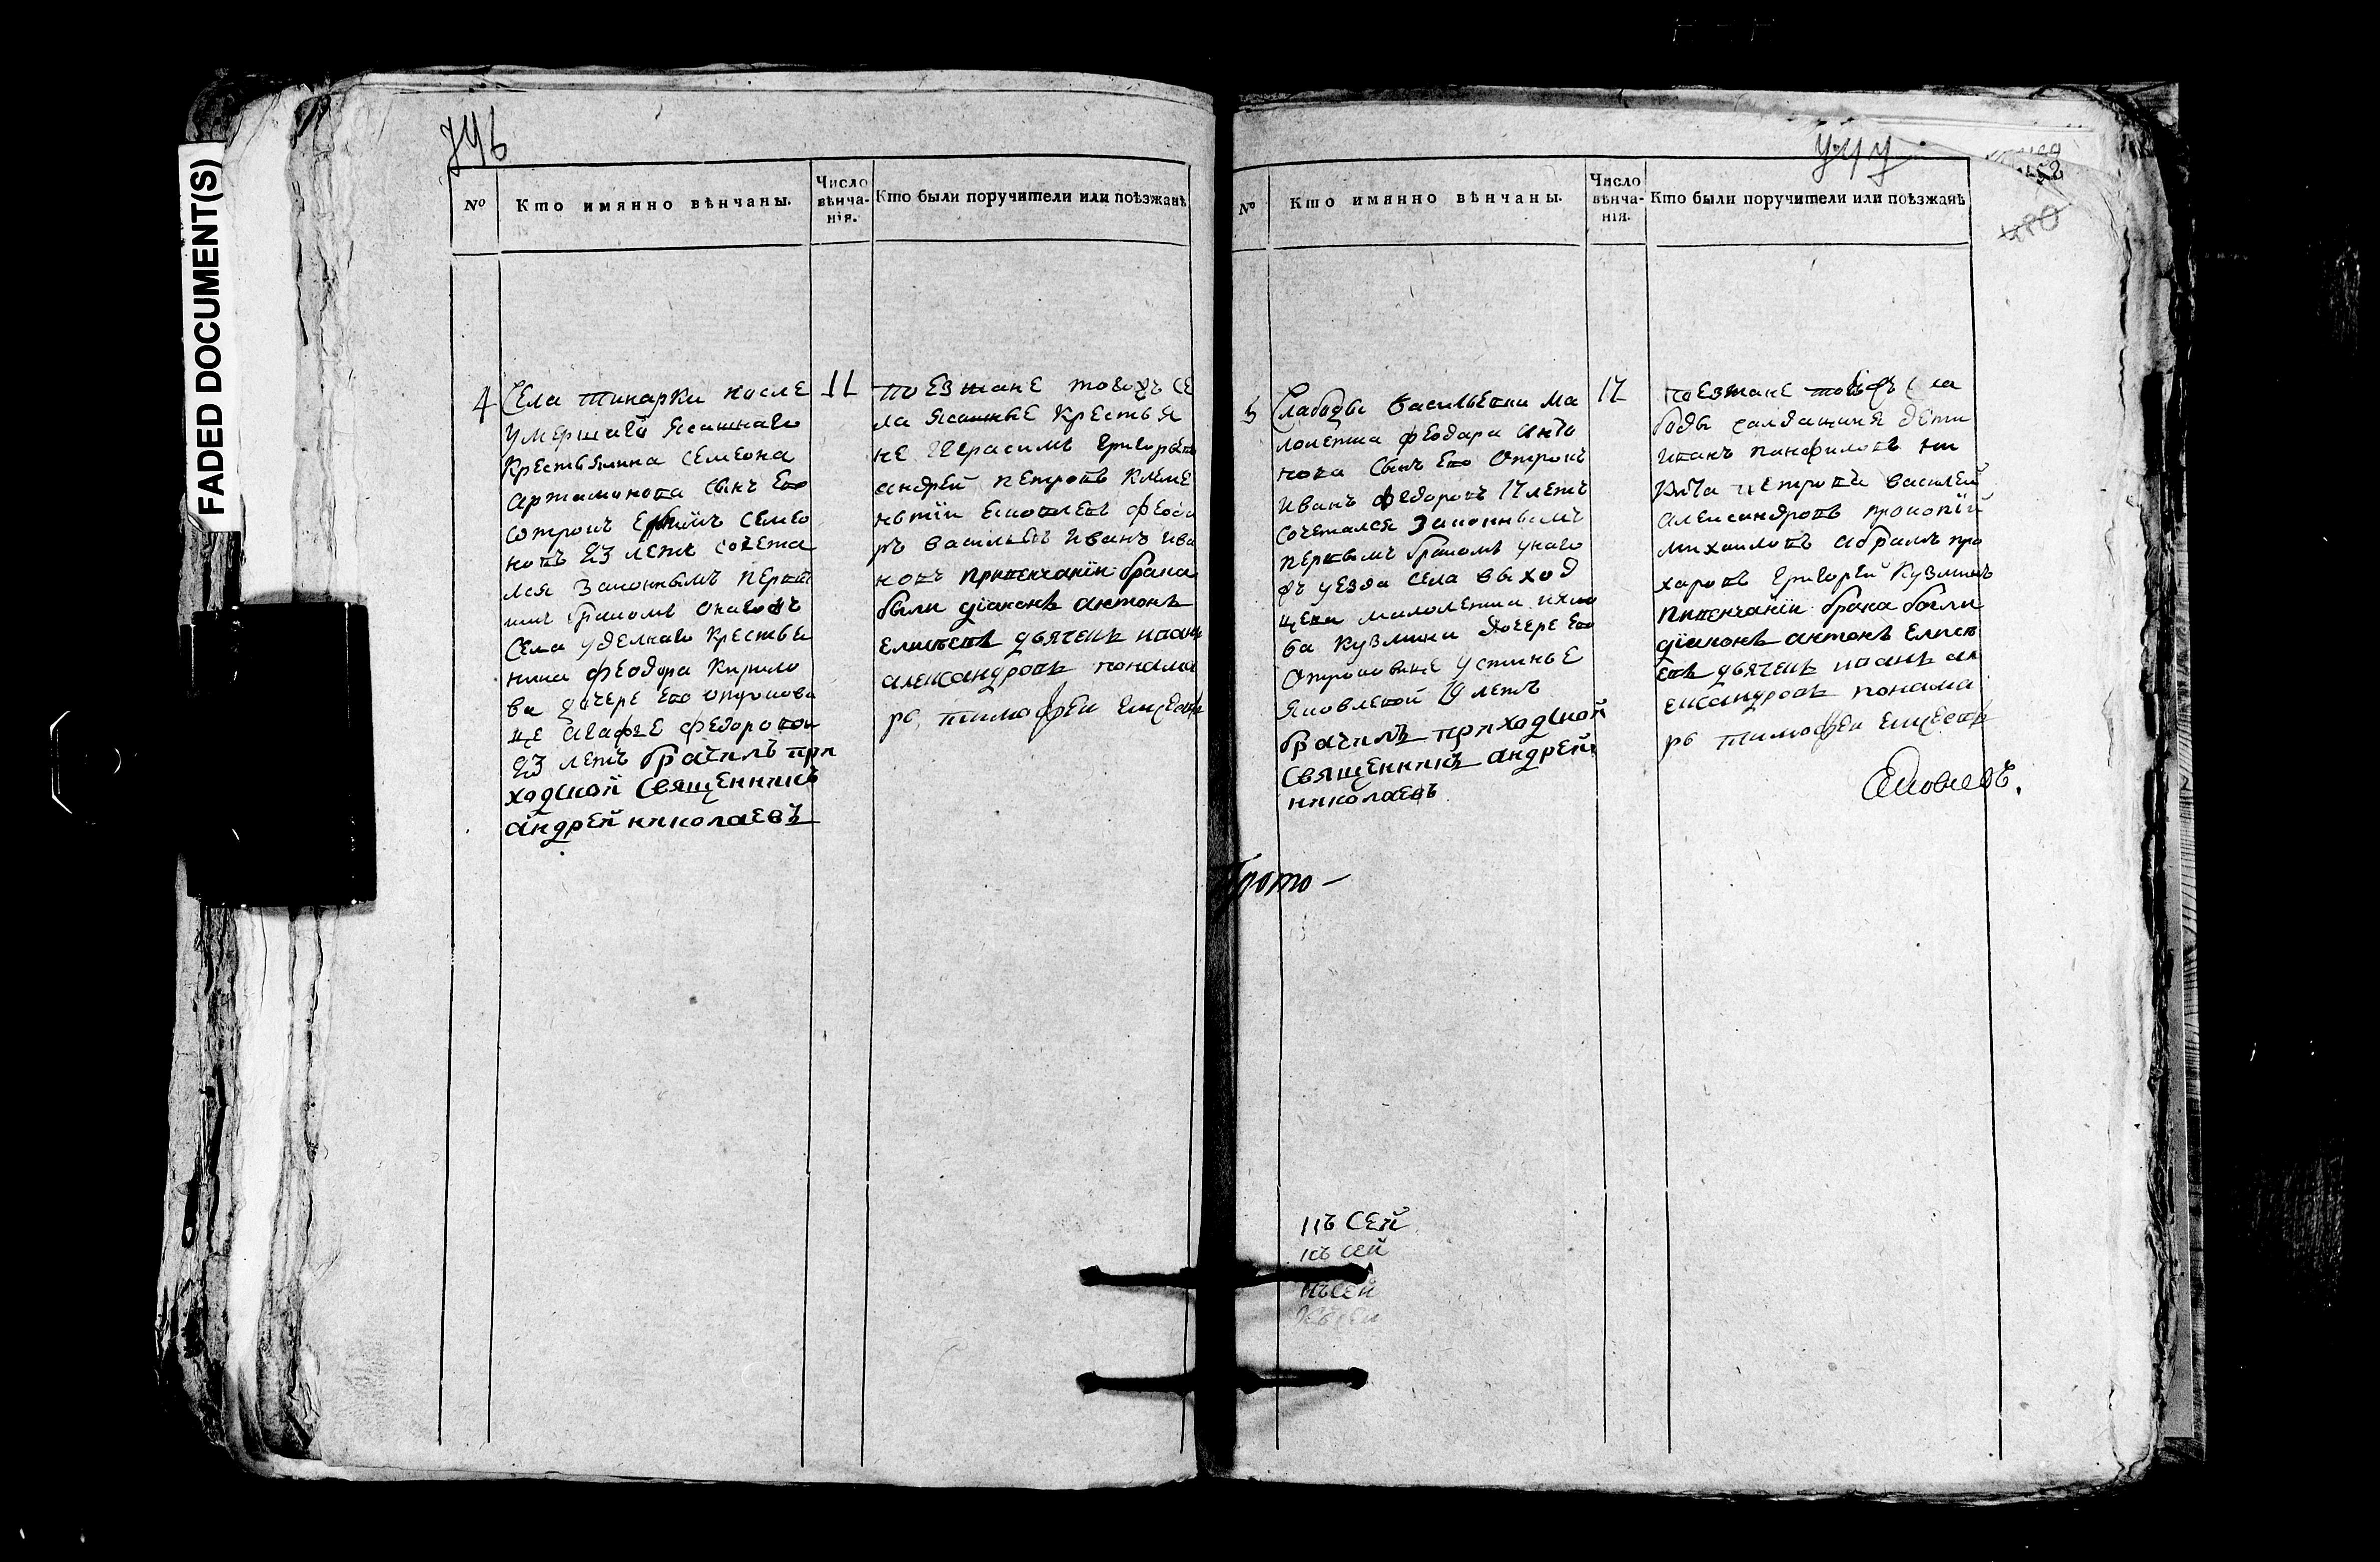 FADED DOCUMENT(S)
746
№ Кто имянно вѣнчаны. Число вѣнча-нія. Кто были поручители или поѣзжанѣ
4
Села тинарки после
Умершаго Ясашнаго
Крестьянина Семеона
артамонова сынъ Его
отрокъ Ефимъ Семео
новъ 23 летъ сочета
лся Законнымъ первы
мъ бракомъ
Села уделнаго Крестья
нина феодора Кирило
ва дочере Его отрокови
це агафье федоровой
23 летъ брачилъ при
ходской Священникъ
андрей николаевъ
11
поезжане тогожъ Се
ла Ясашные Крестья
не Герасимъ григорьевъ
андрей петровъ Клеме
нтiи Яковлевъ феодо
ръ васильевъ Иванъ ива
новъ привенчанiи брака
были дiаконъ антонъ
Елисеевъ дьячекъ иванъ
александровъ понама
рь тимофеи
№ Кто имянно вѣнчаны. Число вѣнча-нія. Кто были поручители или поѣзжанѣ
5
Слабоды васильевки ма
лолетка феодара анто
нова сынъ Его отрокъ
Иванъ федоровъ 17 летъ
сочетался Законнымъ
первымъ бракомъ
уезда села выход
ца малолетка Яко
ва Кузмина дочере Его
отроковице устинье
Яковлевой 19 летъ
брачилъ приходской
Священникъ андрей
николаевъ
17
поезжане тоежъ Сла
боды салдацкия дети
иванъ панфиловъ ни
кита петровъ василей
александровъ прокопiй
михаиловъ абрамъ про
харовъ григорей Кузминъ
привенчанiи брака были
дiаконъ антонъ Елисе
евъ дьячекъ иванъ ал
ександровъ понама
рь тимофеи
Прото-
къ сей
къ сей
къ сей
къ сей